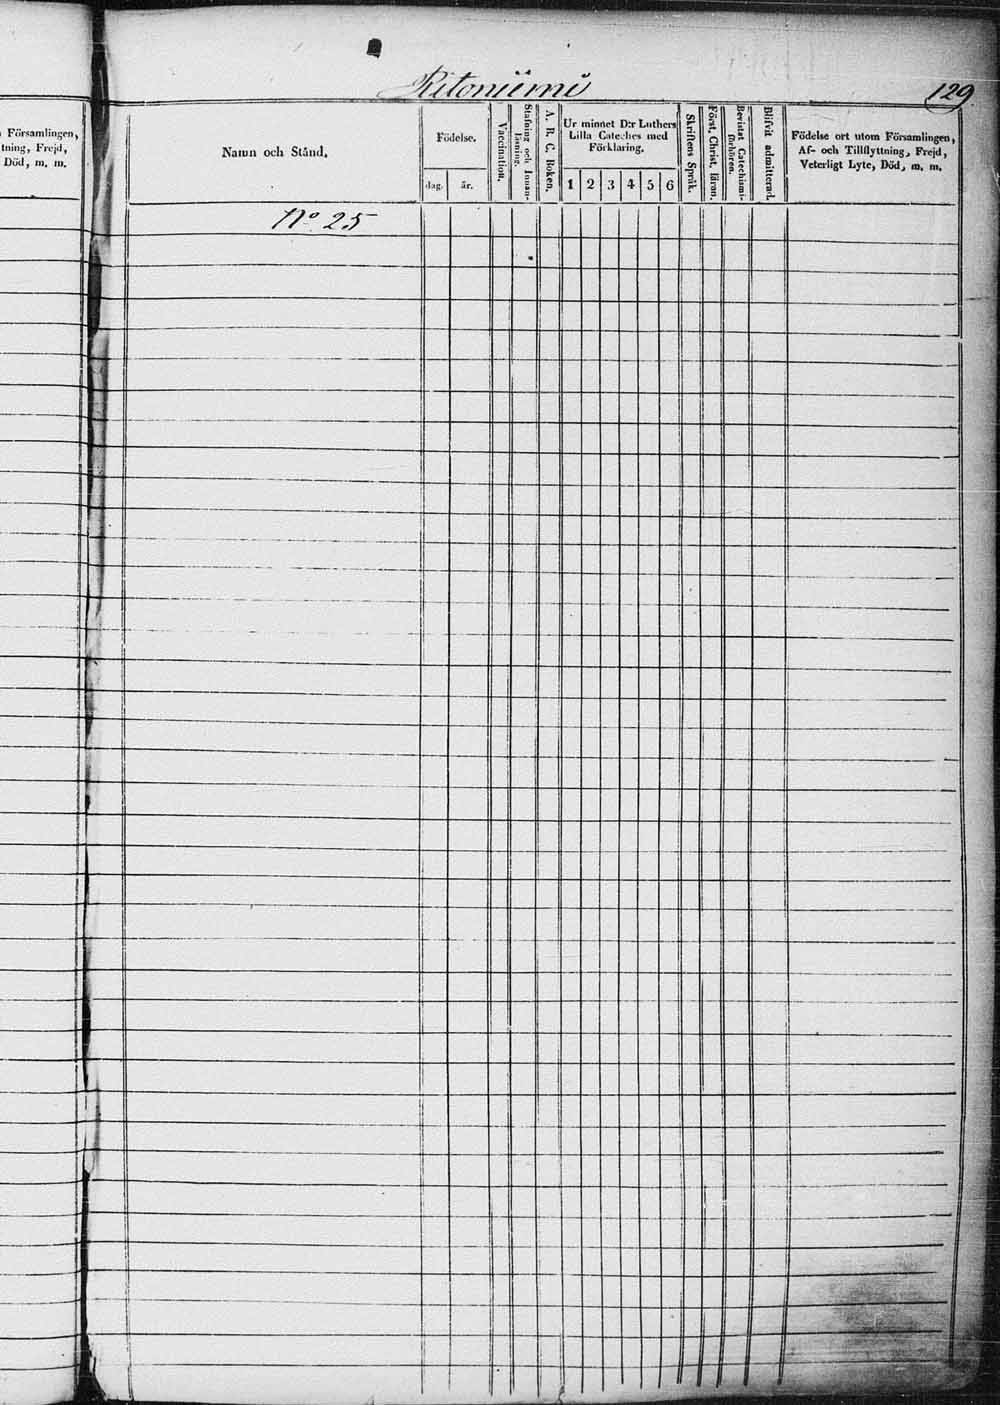 Ritoniemi
129
Församlingen,
tning, Frejd,
Död, m. m.
Namn och Stånd.
Födelse.
dag.
år.
Vaccination.
Stafning och Innan-
läsning.
A. B. C. Boken.
Ur minnet D:r Luthers
Lilla Cateches med
Förklaring.
1 2 3 4 5 6
Skriftens Språk.
Först. Christ. läran.
Bevistat Catechismi-
förhören.
Blifvit admitterad.
Födelse ort utom Församlingen,
Af- och Tillflyttning, Frejd,
Veterligt Lyte, Död, m. m.
No 25